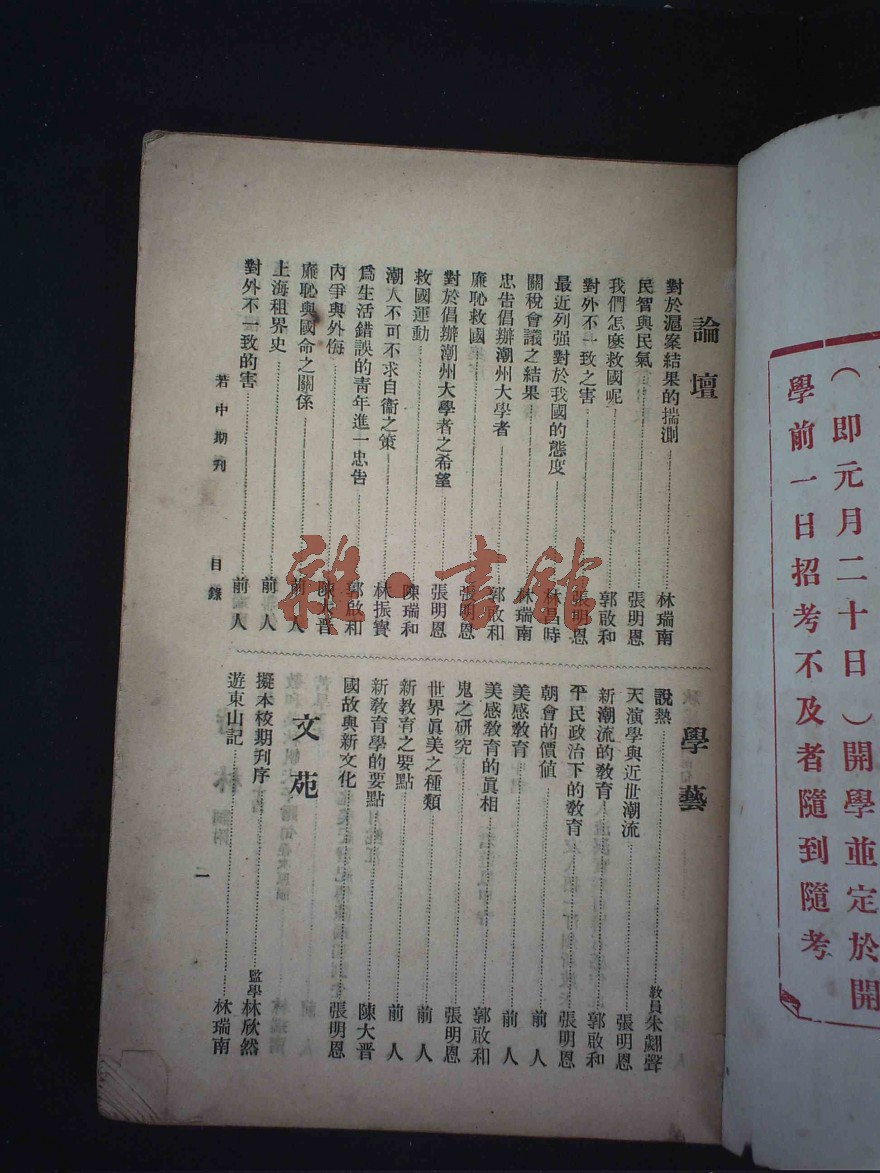 論壇
對於滬案結果的揣測 林瑞南
民智與民氣 張明恩
我們怎麽救國呢 郭啟和
對外不一致之害 張明恩
最近列强對於我國的態度 林昌時
關稅會議之結果 林瑞南
忠告倡辦潮州大學者 郭啟和
廉恥救國 張明恩
對於倡辦潮州大學者之希望 張明恩
救國運動 陳瑞和
潮人不可不求自衞之策 林振賓
爲生活錯誤的靑年進一忠告 郭啟和
內爭與外侮 陳大晋
廉恥與國命之關係 前人
上海租界史 前人
對外不一致的害 前人
若中期刊 目錄
學藝
說熱 教員朱翽聲
天演學與近世潮流 張明恩
新潮流的教育 郭啟和
平民政治下的教育 張明恩
朝會的價値 前人
美感教育 前人
美感教育的眞相 郭啟和
鬼之研究 張明恩
世界眞美之種類 前人
新教育之要點 前人
新教育學的要點 陳大晋
國故與新文化 張明恩
文苑
擬本校期刋序 監學林欣然
遊東山記 林瑞南
二
(即元月二十日)開學並定於開
學前一日招考不及者隨到隨考
昶·書館